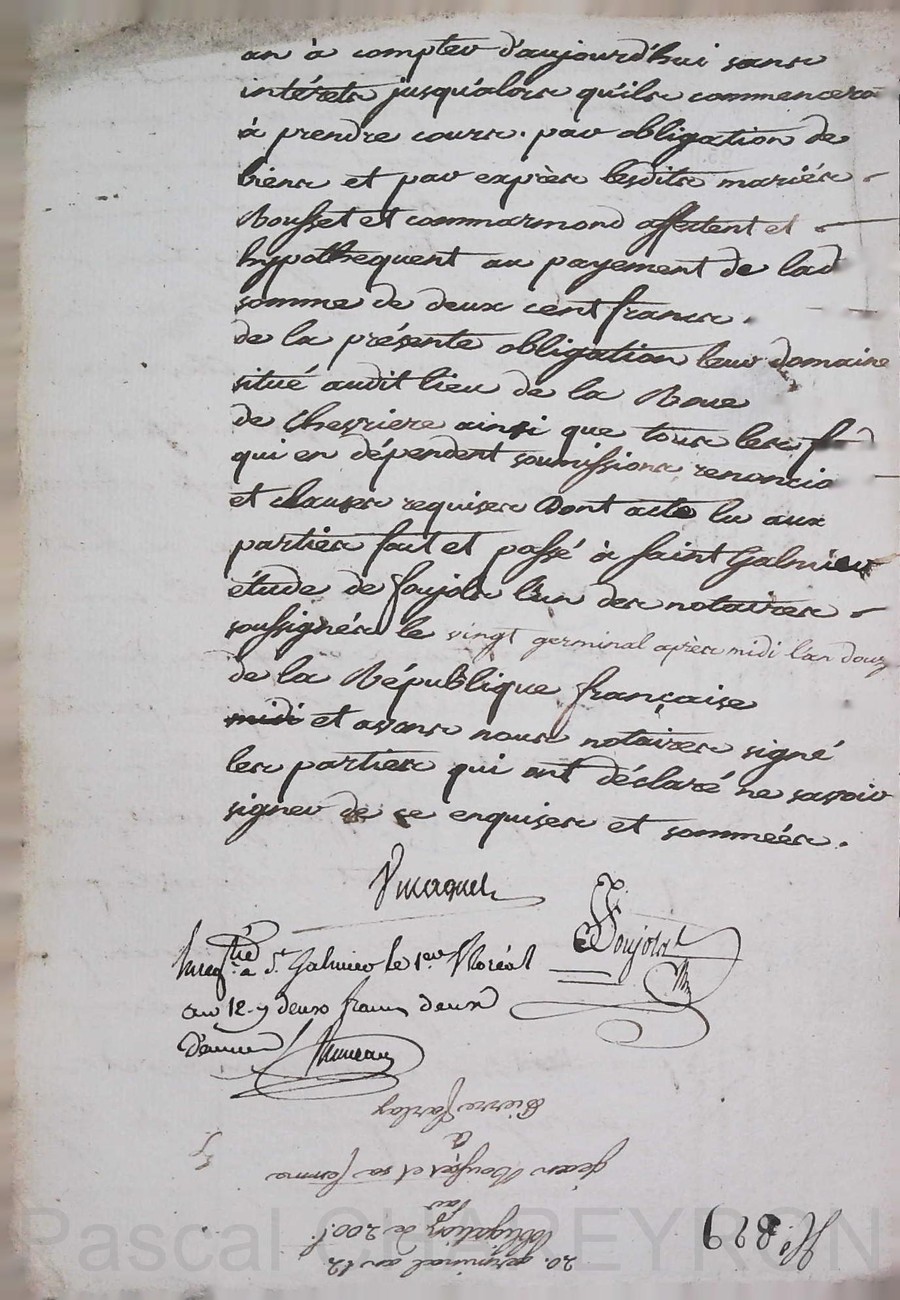 an à compter d'aujourd'hui sans
intérets jusqu'alors qu'ils commencero
à prendre cours. par obligation de
biens et par exprès lesdits mariés
Rousset et commarmond affectent et
hypothequent au payement de lad
somme de deux cent francs.
de la présente obligation leur domaine
situé audit lieu de la Roue
de Chevriere ainsi que tous les
qui en dépendent soumissions renoncia
et clauses requises Dont acte lu aux
parties fait et passé à Saint Galmier
étude de Soujols l'un des notaires
soussignés le vingt germinal après midi l'an douz
de la République française
midi et avons nous notaires signé
les parties qui ont déclaré ne savoir
signer de ce enquises et sommées.
Soujols
à St Galmier le 1er floréal
an 12 deux francs deux
20. germinal an 12
obligation de 200f
par
jean Rousset et sa femme
à
Pierre
No. 829
Pascal CHAREYRON